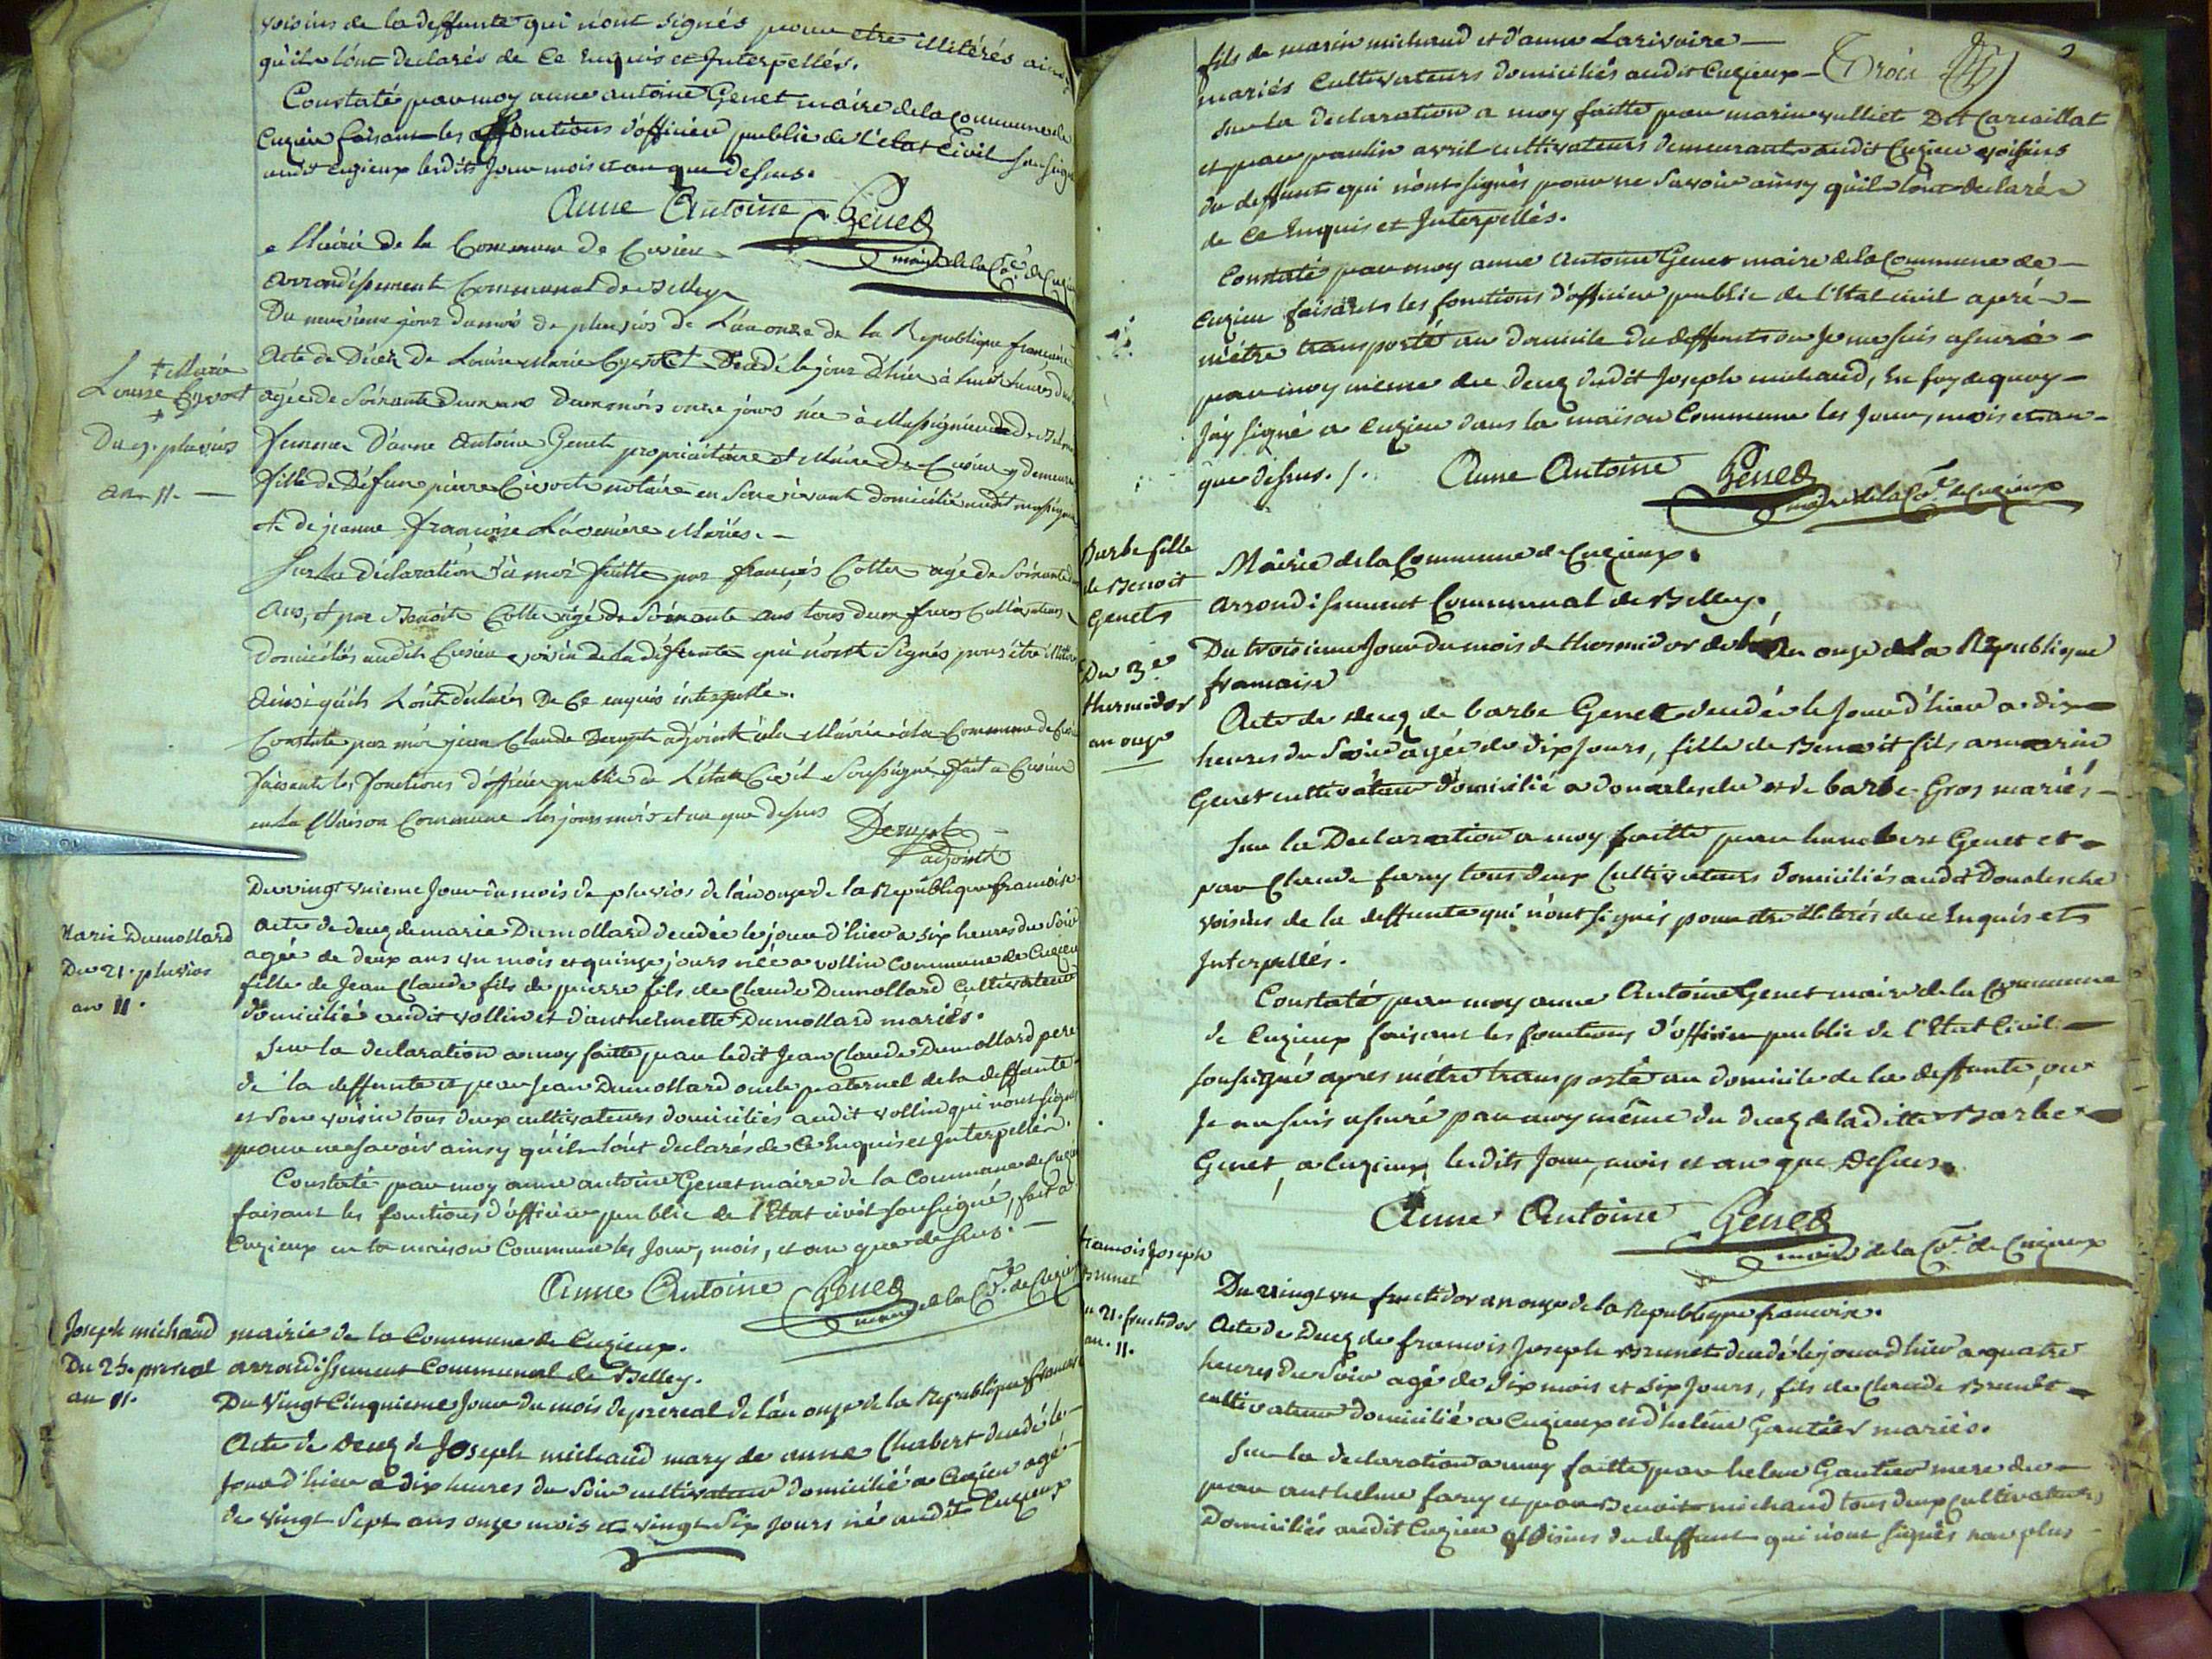 voisins de la deffunte qui n'ont signés pour etre illetérés ainsi
qu'ils l'ont declarés de ce Enquis et Interpellés.
Constaté par moy anne antoine Genet maire de la commune de
Cuzieu faisant les fonctions d'officier public de l'état Civil soussigné
audit Cuzieux lesdits Jour mois et an que dessus.
Anne Antoine Genet
maire de la Cne de Cuzieux
Mairie de la Commune de Cusieu
arrondissement Communal de Belley
Du neuvieme jour du mois de pluvios de L'an onze de la Republique francaise
† Marie
Louise Cyvoct
†
Du 9. pluvios
an 11. —
Acte de Décéz de Louise Marie Cyvoct Décédé le jour d'hier à huit heures du
agée de Soixante deux ans deux mois onze jours née à Massignieu de Belmont
femme D'anne Antoine Genet propriaitaire et Maire de Cusieu y demeurant
fille de Défun pierre Civoct notaire en son vivant domicilié audit massignieu
et de jeanne françoise Mariés. —
Sur la déclaration à moi faitte par françois Collet agé de Soixante
ans, et par Benoit Collet agé de Soixante ans tous deux freres Cultivateurs
Domiciliés audit Cusieu voisin de la défunte qui n'ont Signés pour être
Ainsi qu'ils L'ont déclarés De Ce enquis interpellé.
Constaté par moi jean Claude Derupt adjoint à la Mairie à la Commune de Cusieu
faisant les fonctions d'officier public de L'état Civil Soussigné, fait a Cusieu
en La Maison Commune les jours mois et an que dessus
Derupt
adjoint
Marie Dumollard
Du 21. pluvios
an 11.
Du vingt unieme Jour du mois de pluvios de l'an onze de la Republique francoise
Acte de decez de marie Dumollard decedée le jour d'hier a six heures du soir
agée de deux ans un mois et quinze jours née a vollin Commune de Cuzieu
fille de Jean Claude fils de pierre fils de Claude Dumollard Cultivateur
domicilié audit vollin et d'anthelmette Dumollard mariés.
Sur la declaration a moy faitte par ledit Jean Claude Dumollard pere
de la deffunte et par Jean Dumollard oncle paternel de la deffunte
et son voisin tous deux cultivateurs domiciliés audit vollin qui n'ont signés
pour ne savoir ainsy qu'ils l'ont declarés de ce Enquis et Interpellés.
Constaté par moy anne antoine Genet maire de la Commune de Cuzieu
faisant les fonctions d'officier public de l'Etat civil soussigné, fait a
Cuzieux en la maison Commune les Jour, mois, et an que dessus. —
Anne Antoine Genet
maire de la Cne de Cuzieux
Joseph michaud
Du 25. prereal
an 11.
mairie de la Commune de Cuzieux.
arrondissement Communal de Belley.
Du Vingt Cinquieme Jour du mois de prereal de l'an onze de la Republique francoise
Acte de Decez de Joseph michaud mary de anne Chabert decedé le
Jour d'hier a dix heures du Soir cultivateur domicilié a Cuzieu agé
de vingt Sept ans onze mois et vingt Six Jours né audit Cuzieux
fils de marin michaud et d'anne Larivoire —
mariés Cultivateurs domiciliés audit Cuzieux — Trois
Sur la declaration a moy faitte par marin vulliet Dit Carcaillat
et par paulin avril cultivateurs demeurant audit Cuzieu voisins
du deffunt qui n'ont signés pour ne Savoir ainsy qu'ils l'ont declarés
de ce Enquis et Interpellés.
Constaté par moy anne Antoine Genet maire de la Commune de —
Cuzieu faisant les fonctions d'officier public de l'Etat civil aprés —
m'être transporté au domicile du deffunt ou Je me suis assuré —
par moy meme du decez dudit Joseph michaud, En foy de quoy —
J'ay signé a Cuzieu dans la maison Commune les Jour, mois et an —
que dessus. /.
Anne Antoine Genet
maire de la Cne de Cuzieux
Barbe fille
de Benoit
Genet
Du 3e
thermidor
an onze
Mairie de la Commune de Cuzieux.
arrondissement Communal de Belley.
Du troisieme Jour du mois de thermidor de l'an onze de la Republique
francaise
Acte de decez de barbe Genet decedée le Jour d'hier a dix
heures du Soir agée de dix Jours, fille de Benoit fils a marin
Genet cultivateur domicilié a Donalesche et de barbe Gros mariés —
Sur la Declaration a moy faitte par humbert Genet et
par Claude farny tous deux Cultivateurs domiciliés audit Donalesche
voisins de la deffunte qui n'ont signés pour etre illiterés de ce Enquis et
Interpellés.
Constaté par moy anne Antoine Genet maire de la Commune
de Cuzieux faisant les fonctions d'officier public de l'Etat Civil
soussigné apres m'étre transporté au domicile de la deffunte, ou
Je me suis assuré par moy même du decez de laditte Barbe
Genet, a Cuzieux lesdits Jour, mois et an que Dessus.
Anne Antoine Genet
maire de la Cne de Cuzieux
francois Joseph
Brunet
du 21. fructidor
an. 11.
Du vingt un fructidor an onze de la Republique francoise.
Acte de Decez de francois Joseph Brunet decedé le jour d'hier a quatre
heures du Soir agé de Six mois et Six Jours, fils de Claude Brunet
cultivateur domicilié a Cuzieux et d'helene Gautier mariés.
Sur la declaration a moy faitte par helene Gautier mere du —
par anthelme farny et par Benoit michaud tous deux Cultivateurs
Domiciliés audit Cuzieu voisins du deffunt qui n'ont signés non plus